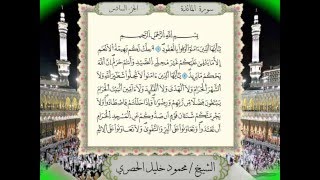 الجزء السادس
سورة المائدة
بِسْمِ اللَّهِ الرَّحْمَٰنِ الرَّحِيمِ
يَٰٓأَيُّهَا الَّذِينَ ءَامَنُوٓا أَوْفُوا بِالْعُقُودِ ۚ أُحِلَّتْ لَكُم بَهِيمَةُ الْأَنْعَٰمِ
إِلَّا مَا يُتْلَىٰ عَلَيْكُمْ غَيْرَ مُحِلِّى الصَّيْدِ وَأَنتُمْ حُرُمٌ ۗ إِنَّ اللَّهَ
يَحْكُمُ مَا يُرِيدُ ۝ يَٰٓأَيُّهَا الَّذِينَ ءَامَنُوا لَا تُحِلُّوا شَعَٰٓئِرَ اللَّهِ وَلَا
الشَّهْرَ الْحَرَامَ وَلَا الْهَدْىَ وَلَا الْقَلَٰٓئِدَ وَلَآ ءَآمِّينَ الْبَيْتَ الْحَرَامَ
يَبْتَغُونَ فَضْلًا مِّن رَّبِّهِمْ وَرِضْوَٰنًا ۚ وَإِذَا حَلَلْتُمْ فَاصْطَادُوا ۚ وَلَا
يَجْرِمَنَّكُمْ شَنَـَٔانُ قَوْمٍ أَن صَدُّوكُمْ عَنِ الْمَسْجِدِ الْحَرَامِ
أَن تَعْتَدُوا ۘ وَتَعَاوَنُوا عَلَى الْبِرِّ وَالتَّقْوَىٰ ۖ وَلَا تَعَاوَنُوا عَلَى الْإِثْمِ
الشيخ / محمود خليل الحصري